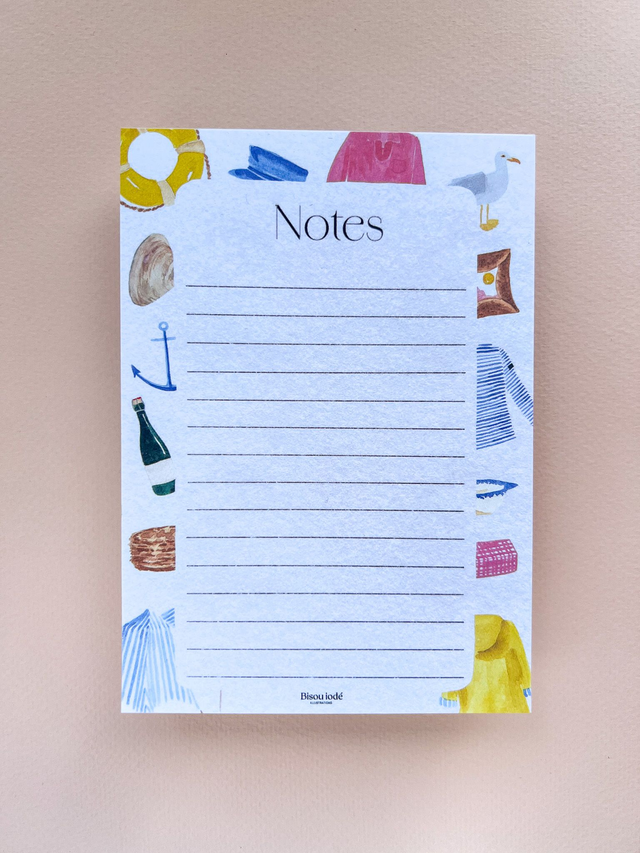 Notes
Bisou iodé
ILLUSTRATIONS